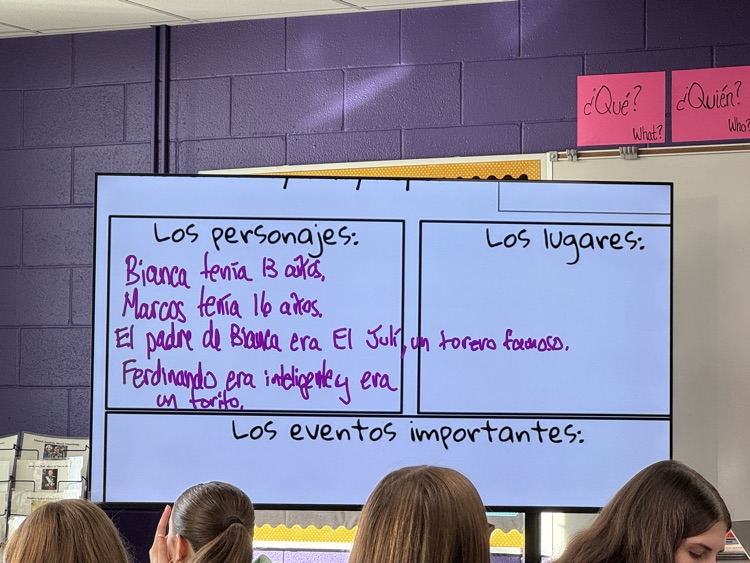 ¿Qué?
What?
¿Quién?
Who?
Los personajes:
Bianca tenía 13 años.
Marcos tenía 16 años.
El padre de Bianca era El Juli, un torero famoso.
Ferdinando era inteligente y era
un torito.
Los lugares:
Los eventos importantes: